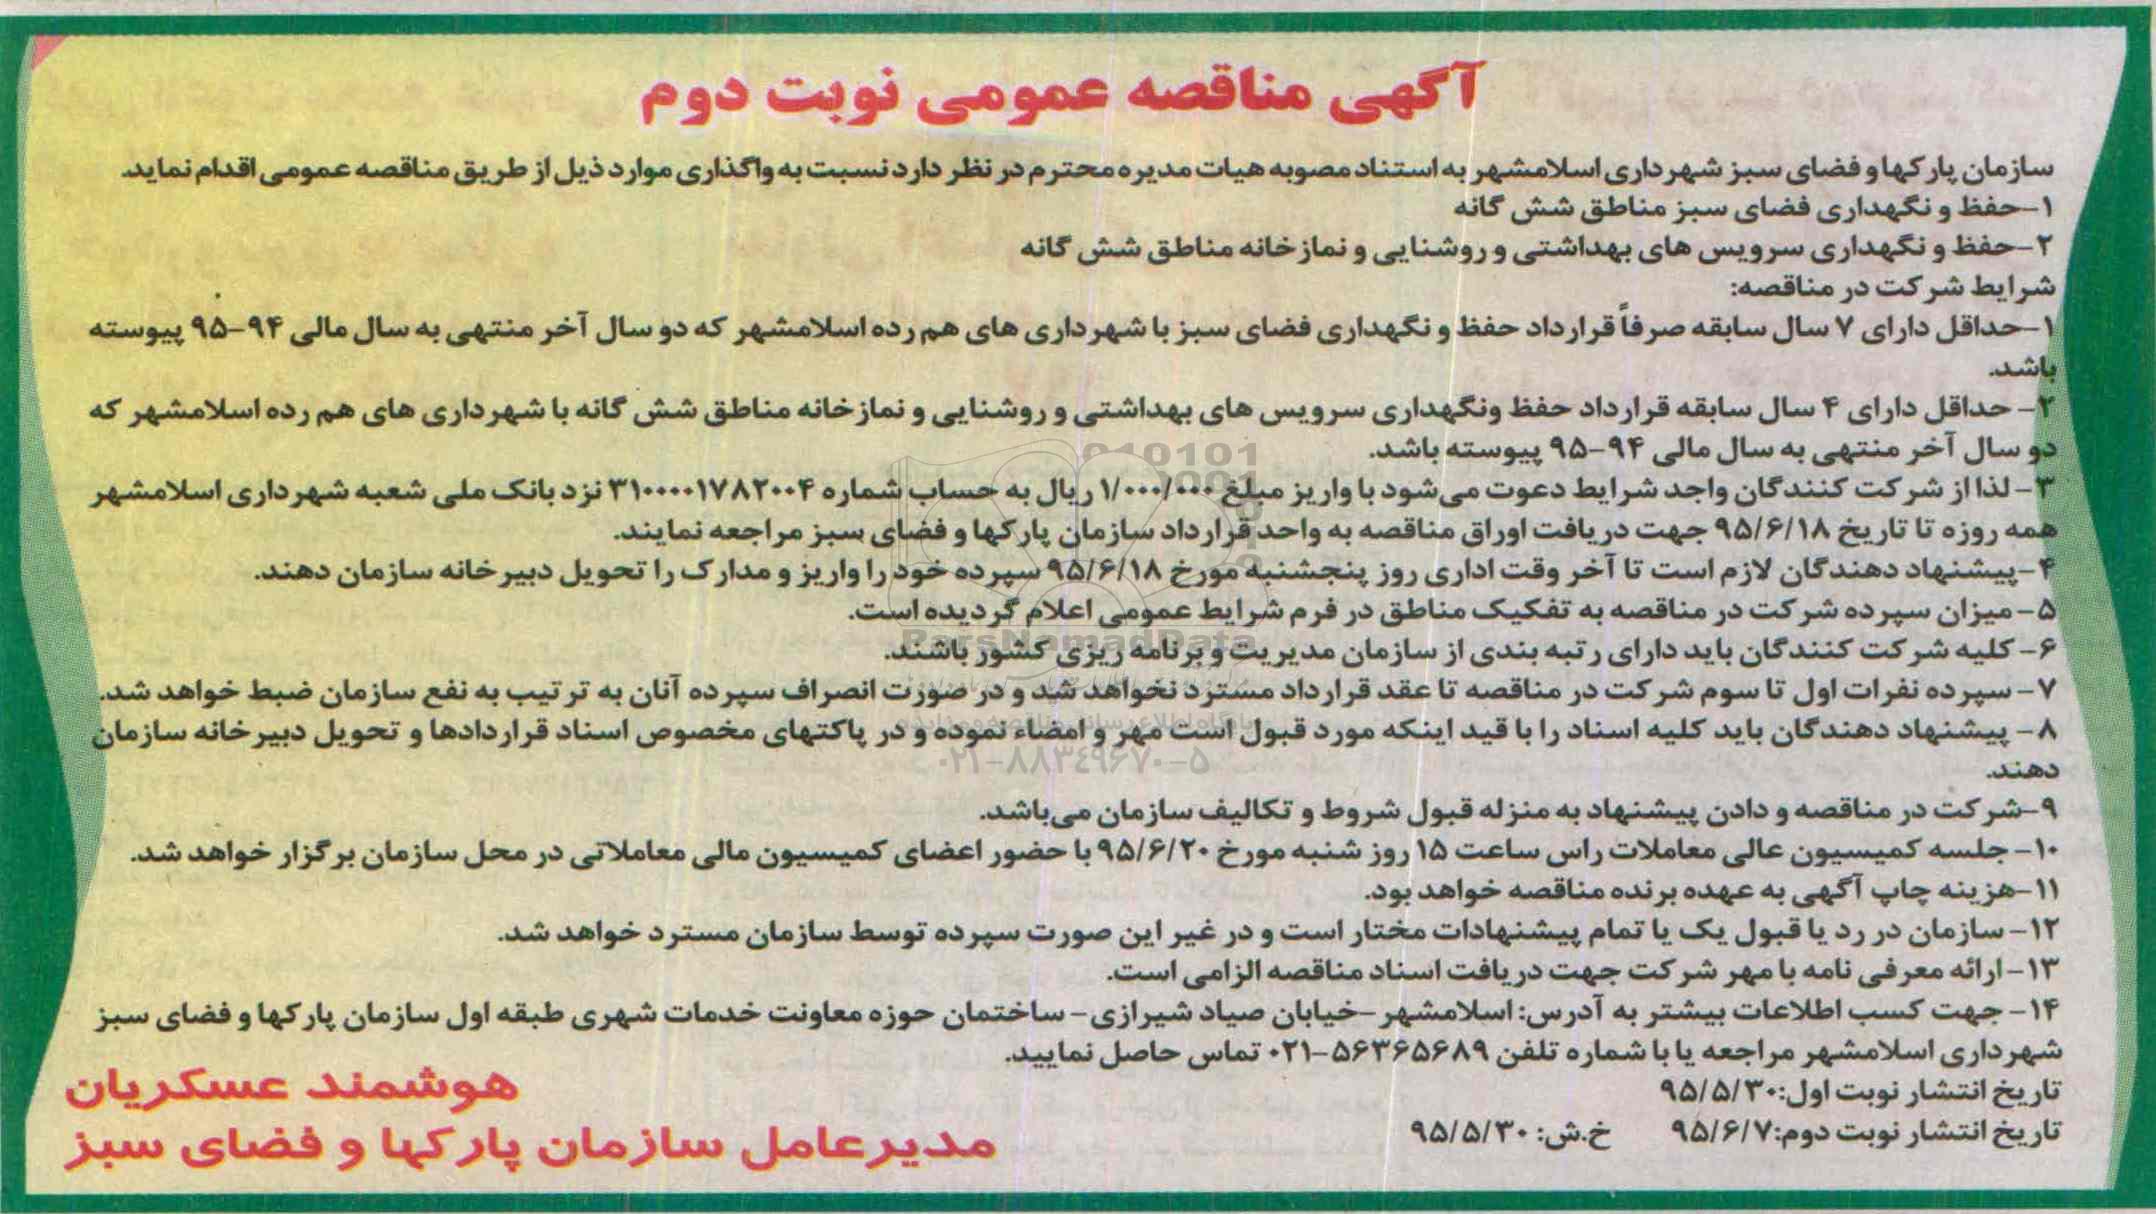 آگهی مناقصه عمومی نوبت دوم
سازمان پارکها و فضای سبز شهرداری اسلامشهر به استناد مصوبه هیات مدیره محترم در نظر دارد نسبت به واگذاری موارد ذیل از طریق مناقصه عمومی اقدام نماید.
۱-حفظ و نگهداری فضای سبز مناطق شش گانه
۲-حفظ و نگهداری سرویس های بهداشتی و روشنایی و نمازخانه مناطق شش گانه
شرایط شرکت در مناقصه:
۱-حداقل دارای ۷ سال سابقه صرفاً قرارداد حفظ و نگهداری فضای سبز با شهرداری های هم رده اسلامشهر که دو سال آخر منتهی به سال مالی ۹۴-۹۵ پیوسته
باشد.
۲- حداقل دارای ۴ سال سابقه قرارداد حفظ ونگهداری سرویس های بهداشتی و روشنایی و نمازخانه مناطق شش گانه با شهرداری های هم رده اسلامشهر که
دو سال آخر منتهی به سال مالی ۹۴-۹۵ پیوسته باشد.
۳- لذا از شرکت کنندگان واجد شرایط دعوت می‌شود با واریز مبلغ ۱/۰۰۰/۰۰۰ ریال به حساب شماره ۳۱۰۰۰۰۱۷۸۲۰۰۴ نزد بانک ملی شعبه شهرداری اسلامشهر
همه روزه تا تاریخ ۹۵/۶/۱۸ جهت دریافت اوراق مناقصه به واحد قرارداد سازمان پارکها و فضای سبز مراجعه نمایند.
۴-پیشنهاد دهندگان لازم است تا آخر وقت اداری روز پنجشنبه مورخ ۹۵/۶/۱۸ سپرده خود را واریز و مدارک را تحویل دبیرخانه سازمان دهند.
۵- میزان سپرده شرکت در مناقصه به تفکیک مناطق در فرم شرایط عمومی اعلام گردیده است.
۶- کلیه شرکت کنندگان باید دارای رتبه بندی از سازمان مدیریت و برنامه ریزی کشور باشند.
۷- سپرده نفرات اول تا سوم شرکت در مناقصه تا عقد قرارداد مسترد نخواهد شد و در صورت انصراف سپرده آنان به ترتیب به نفع سازمان ضبط خواهد شد.
۸- پیشنهاد دهندگان باید کلیه اسناد را با قید اینکه مورد قبول است مهر و امضاء نموده و در پاکتهای مخصوص اسناد قراردادها و تحویل دبیرخانه سازمان
دهند.
۹-شرکت در مناقصه و دادن پیشنهاد به منزله قبول شروط و تکالیف سازمان می‌باشد.
۱۰- جلسه کمیسیون عالی معاملات راس ساعت ۱۵ روز شنبه مورخ ۹۵/۶/۲۰ با حضور اعضای کمیسیون مالی معاملاتی در محل سازمان برگزار خواهد شد.
۱۱-هزینه چاپ آگهی به عهده برنده مناقصه خواهد بود.
۱۲- سازمان در رد یا قبول یک یا تمام پیشنهادات مختار است و در غیر این صورت سپرده توسط سازمان مسترد خواهد شد.
۱۳- ارائه معرفی نامه با مهر شرکت جهت دریافت اسناد مناقصه الزامی است.
۱۴- جهت کسب اطلاعات بیشتر به آدرس: اسلامشهر-خیابان صیاد شیرازی- ساختمان حوزه معاونت خدمات شهری طبقه اول سازمان پارکها و فضای سبز
شهرداری اسلامشهر مراجعه یا با شماره تلفن ۵۶۳۶۵۶۸۹-۰۲۱ تماس حاصل نمایید.
تاریخ انتشار نوبت اول:۹۵/۵/۳۰
تاریخ انتشار نوبت دوم:۹۵/۶/۷ خ.ش: ۹۵/۵/۳۰
هوشمند عسکریان
مدیرعامل سازمان پارکها و فضای سبز
ParsNamadData
۰۲۱-۸۸۳۴۹۶۷۰-۵